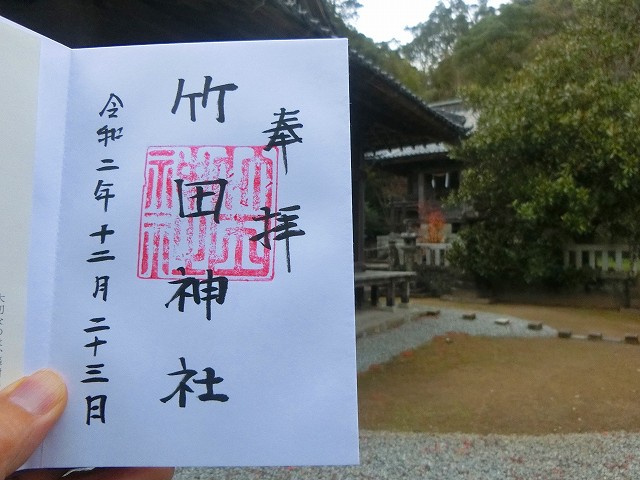 奉拝
竹田神社
令和二年十二月二十三日